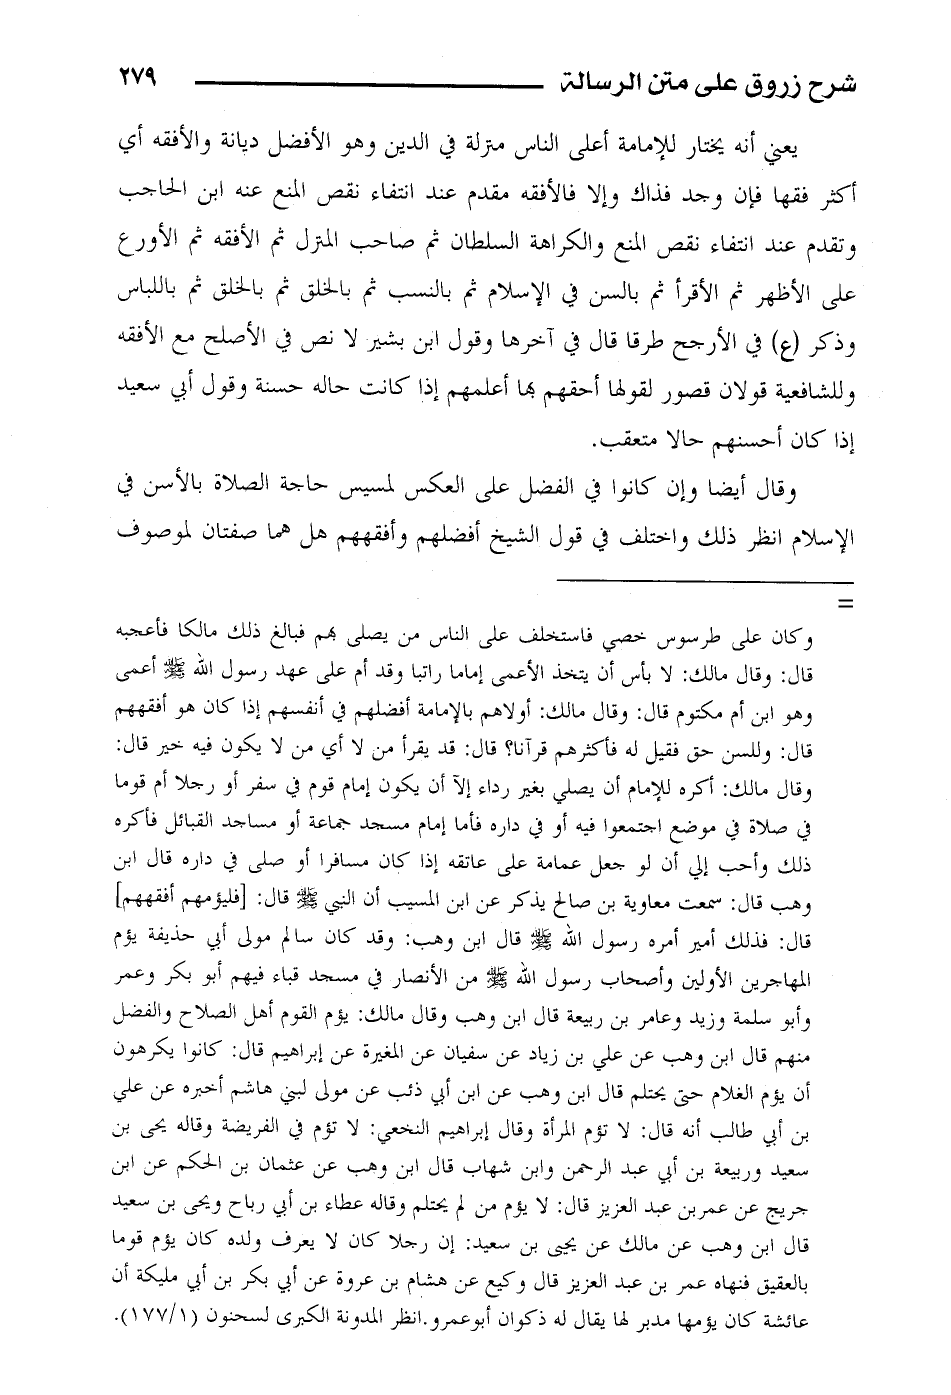 شرح زروق على متن الرسالة ٢٧٩
يعني أنه يختار للإمامة أعلى الناس منزلة في الدين وهو الأفضل ديانة والأفقه أي
أكثر فقها فإن وجد فذاك وإلا فالأفقه مقدم عند انتفاء نقص المنع عنه ابن الحاجب
وتقدم عند انتفاء نقص المنع والكراهة السلطان ثم صاحب المنزل ثم الأفقه ثم الأورع
على الأظهر ثم الأقرأ ثم بالسن في الإسلام ثم بالنسب ثم بالخلق ثم بالخلق ثم باللباس
وذكر (ع) في الأرجح طرقا قال في آخرها وقول ابن بشير لا نص في الأصلح مع الأفقه
وللشافعية قولان قصور لقولها أحقهم بها أعلمهم إذا كانت حاله حسنة وقول أبي سعيد
إذا كان أحسنهم حالا متعقب.
وقال أيضا وإن كانوا في الفضل على العكس لمسيس حاجة الصلاة بالأسن في
الإسلام انظر ذلك واختلف في قول الشيخ أفضلهم وأفقههم هل هما صفتان لموصوف
=
وكان على طرسوس خصي فاستخلف على الناس من يصلى بهم فبالغ ذلك مالكا فأعجبه
قال: وقال مالك: لا بأس أن يتخذ الأعمى إماما راتبا وقد أم على عهد رسول الله ﷺ أعمى
وهو ابن أم مكتوم قال: وقال مالك: أولاهم بالإمامة أفضلهم في أنفسهم إذا كان هو أفقههم
قال: وللسن حق فقيل له فأكثرهم قرآنا؟ قال: قد يقرأ من لا أي من لا يكون فيه خير قال:
وقال مالك: أكره للإمام أن يصلي بغير رداء إلآ أن يكون إمام قوم في سفر أو رجلا أم قوما
في صلاة في موضع اجتمعوا فيه أو في داره فأما إمام مسجد جماعة أو مساجد القبائل فأكره
ذلك وأحب إلي أن لو جعل عمامة على عاتقه إذا كان مسافرا أو صلى في داره قال ابن
وهب قال: سمعت معاوية بن صالح يذكر عن ابن المسيب أن النبي ﷺ قال: [فليؤمهم أفقههم]
قال: فذلك أمير أمره رسول الله ﷺ قال ابن وهب: وقد كان سالم مولى أبي حذيفة يؤم
المهاجرين الأولين وأصحاب رسول الله ﷺ من الأنصار في مسجد قباء فيهم أبو بكر وعمر
وأبو سلمة وزيد وعامر بن ربيعة قال ابن وهب وقال مالك: يؤم القوم أهل الصلاح والفضل
منهم قال ابن وهب عن علي بن زياد عن سفيان عن المغيرة عن إبراهيم قال: كانوا يكرهون
أن يؤم الغلام حتى يحتلم قال ابن وهب عن ابن أبي ذئب عن مولى لبني هاشم أخبره عن علي
بن أبي طالب أنه قال: لا تؤم المرأة وقال إبراهيم النخعي: لا تؤم في الفريضة وقاله يحى بن
سعيد وربيعة بن أبي عبد الرحمن وابن شهاب قال ابن وهب عن عثمان بن الحكم عن ابن
جريج عن عمربن عبد العزيز قال: لا يؤم من لم يحتلم وقاله عطاء بن أبي رباح ويحى بن سعيد
قال ابن وهب عن مالك عن يحيى بن سعيد: إن رجلا كان لا يعرف ولده كان يؤم قوما
بالعقيق فنهاه عمر بن عبد العزيز قال وكيع عن هشام بن عروة عن أبي بكر بن أبي مليكة أن
عائشة كان يؤمها مدبر لها يقال له ذكوان أبوعمرو.انظر المدونة الكبرى لسحنون (١٧٧/١).